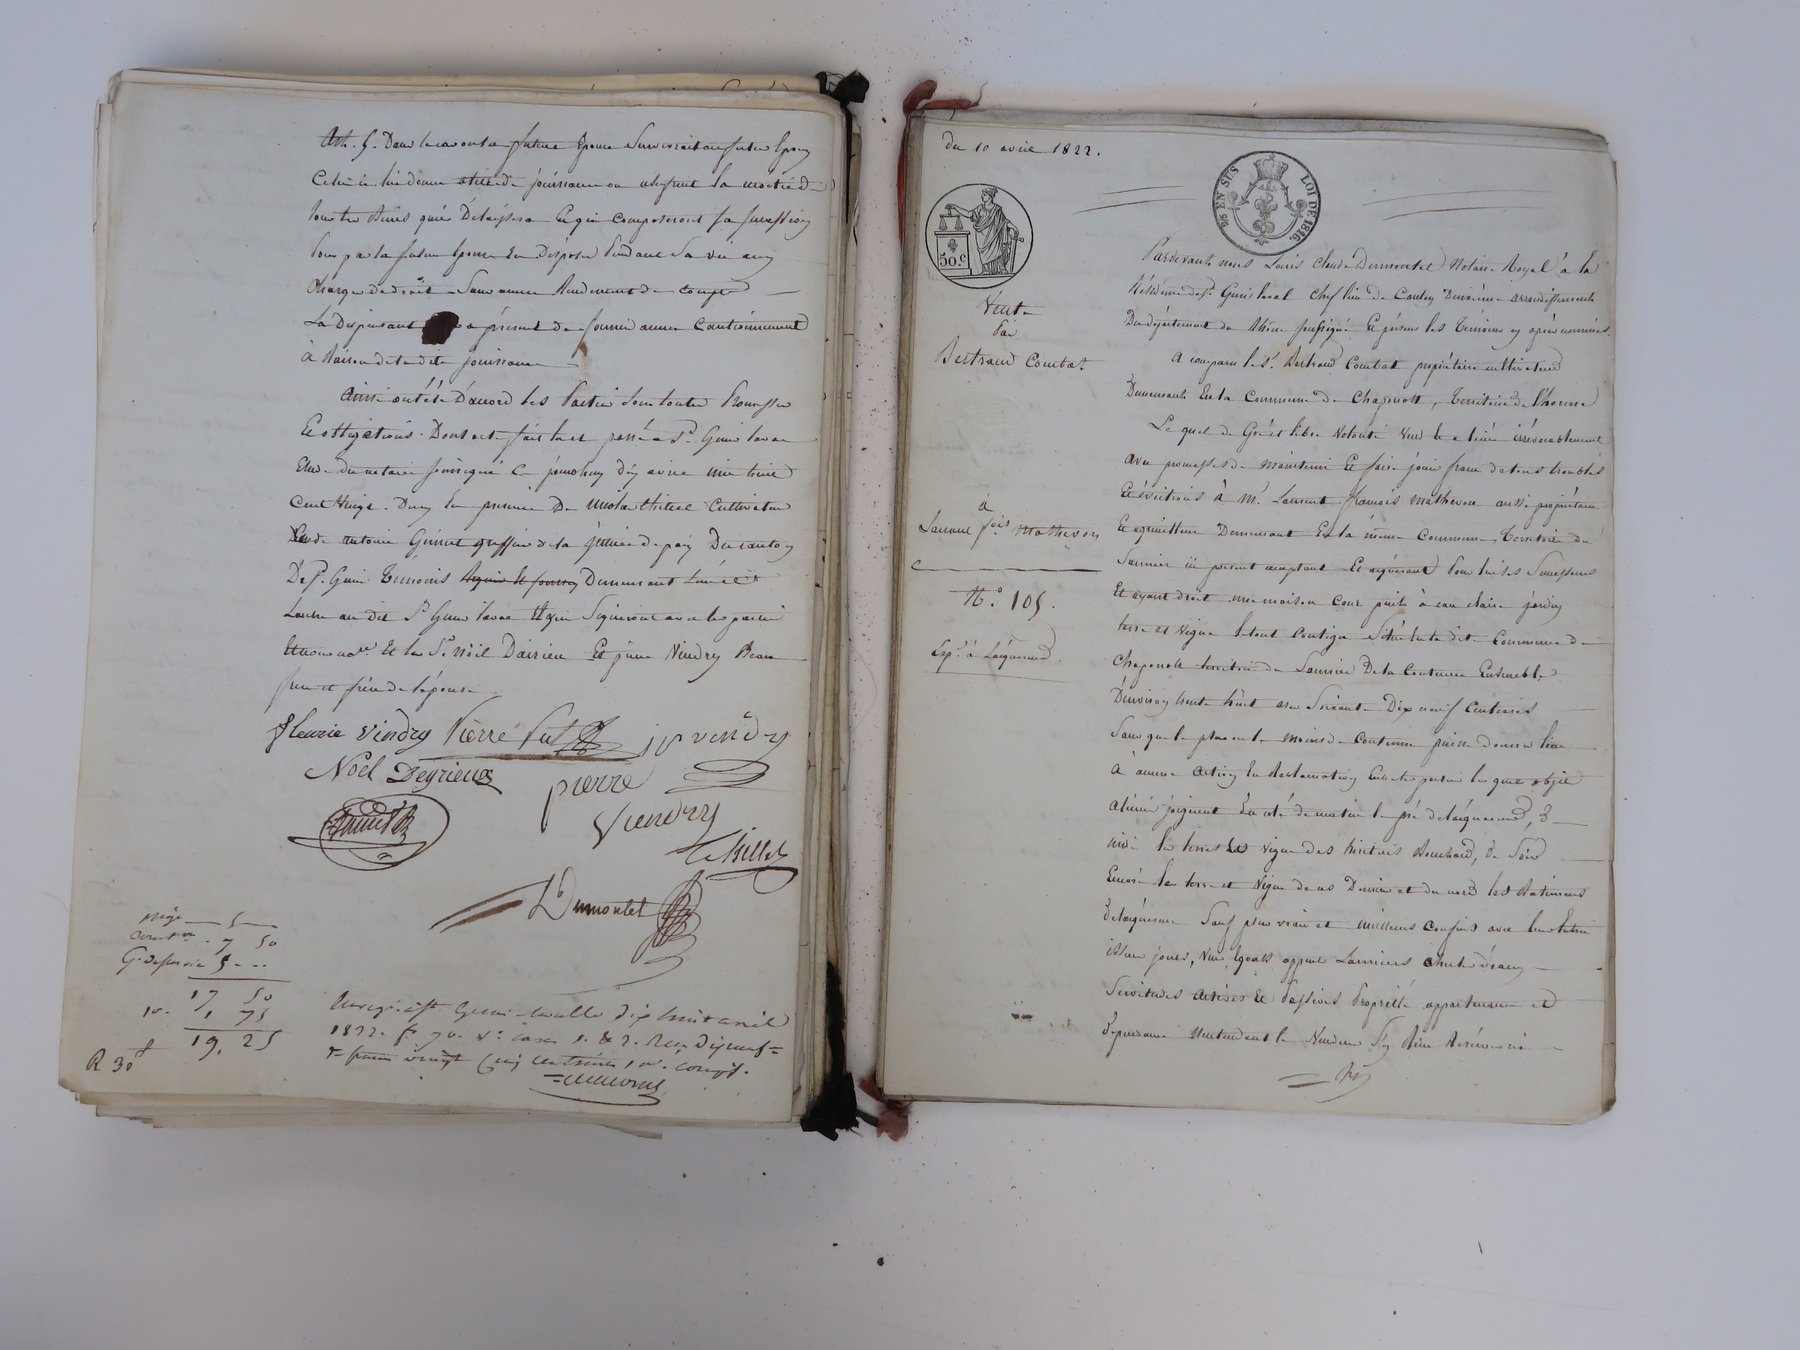 Art. 5. Dans le cas ou la future Epouse Survivrait au futur Epoux
Celui ci lui donne à titre de jouissance ou usufruit la moitié de
tous les Biens qu'il Délaissera Et qui Composeront sa succession
Pour par la future Epouse En Disposer Pendant Sa vie avec
Charge de droit Sans aucun Rendement de Compte
La Dispensant a présent de fournir aucun Cautionnement
à Raison de ladite jouissance
Ainsi ont été D'accord les Parties Sous toutes Promesses
Et obligations. Dont acte fait lu et passé a St. Genis laval
Etude du notaire soussigné Ce jourd'hui dix avril mil huit
Cent Vingt-Deux En présence De Cultivateur
antoine Guinet greffier de la justice de paix Du canton
De St. Genis Témoins Demeurant
L'autre au dit St Genis laval qui Signeront avec les parties
Et le Sr. Noël Dairieu Et pierre Vindry Beau
frere et frère de l'épouse
fleurie vindry Pierre jr vendry
Noël Deyrieux pierre
Guinet
Viendry
Lbt Dumontet
5
7 50
5
17 50
1 75
19. 25
R 30
Enregistré à St Genis Laval le dix huit avril
1822 fo 70 Vo cases 1. & 2. Reçu dix sept
francs vingt cinq centimes compt.
du 10 avril 1822.
25 EN SUS LOI DE 1816.
50 c
Vente
Par
Bertrand Combat
à
Laurent fois Mathevon
No. 105.
Exp. à l'acquereur.
Pardevant nous Louis Claude Dumontet Notaire Royal à la
Résidence de St. Genis laval chef lieu de Canton Deuxième arrondissement
Du département du Rhône soussigné Et présens les Témoins ci après nommés.
A comparu le Sr. Bertrand Combat propriétaire cultivateur
Demeurant En la Commune de Chaponost, Territoire de l'horme
Le quel de Gré et libre Volonté Vend Et aliéne irrévocablement
avec promesses de Maintenir Et faire jouir franc de tous troubles
Et évictions à Mr. Laurent francois Mathevon aussi propriétaire
Et aquietteur Demeurant En la même Commune. Territoire du
Saunier ici présent acceptant Et acquérant Pour lui ses Successeurs
Et ayant droit une maison Cour puits à eau claire jardin
terre et vigne le tout Contigu Situé En la dite Commune de
Chaponost territoire du Saunier De la Contenue Ensemble
D'environ trente huit ares Soixante Dix neuf Centiares
Sans que le plus ou le moins de Contenue puisse donner lieu
A aucune action En Réclamation Entre les parties les quels objets
aliénés joignent Du coté de matin le pré de l'acquereur, De
midi les terres Et vigne des héritiers Bouchard, De Soir
Encore les terre et Vigne de ces Derniers et du nord les Batimens
de l'acquereur Sauf plus vrais et meilleurs confins avec leurs
issues jours, Vues Egouts chute d'eaux
Servitudes actives Et Passives Propriété appartenances et
dépendances n'entendant le Vendeur S'y Rien Réserver ni